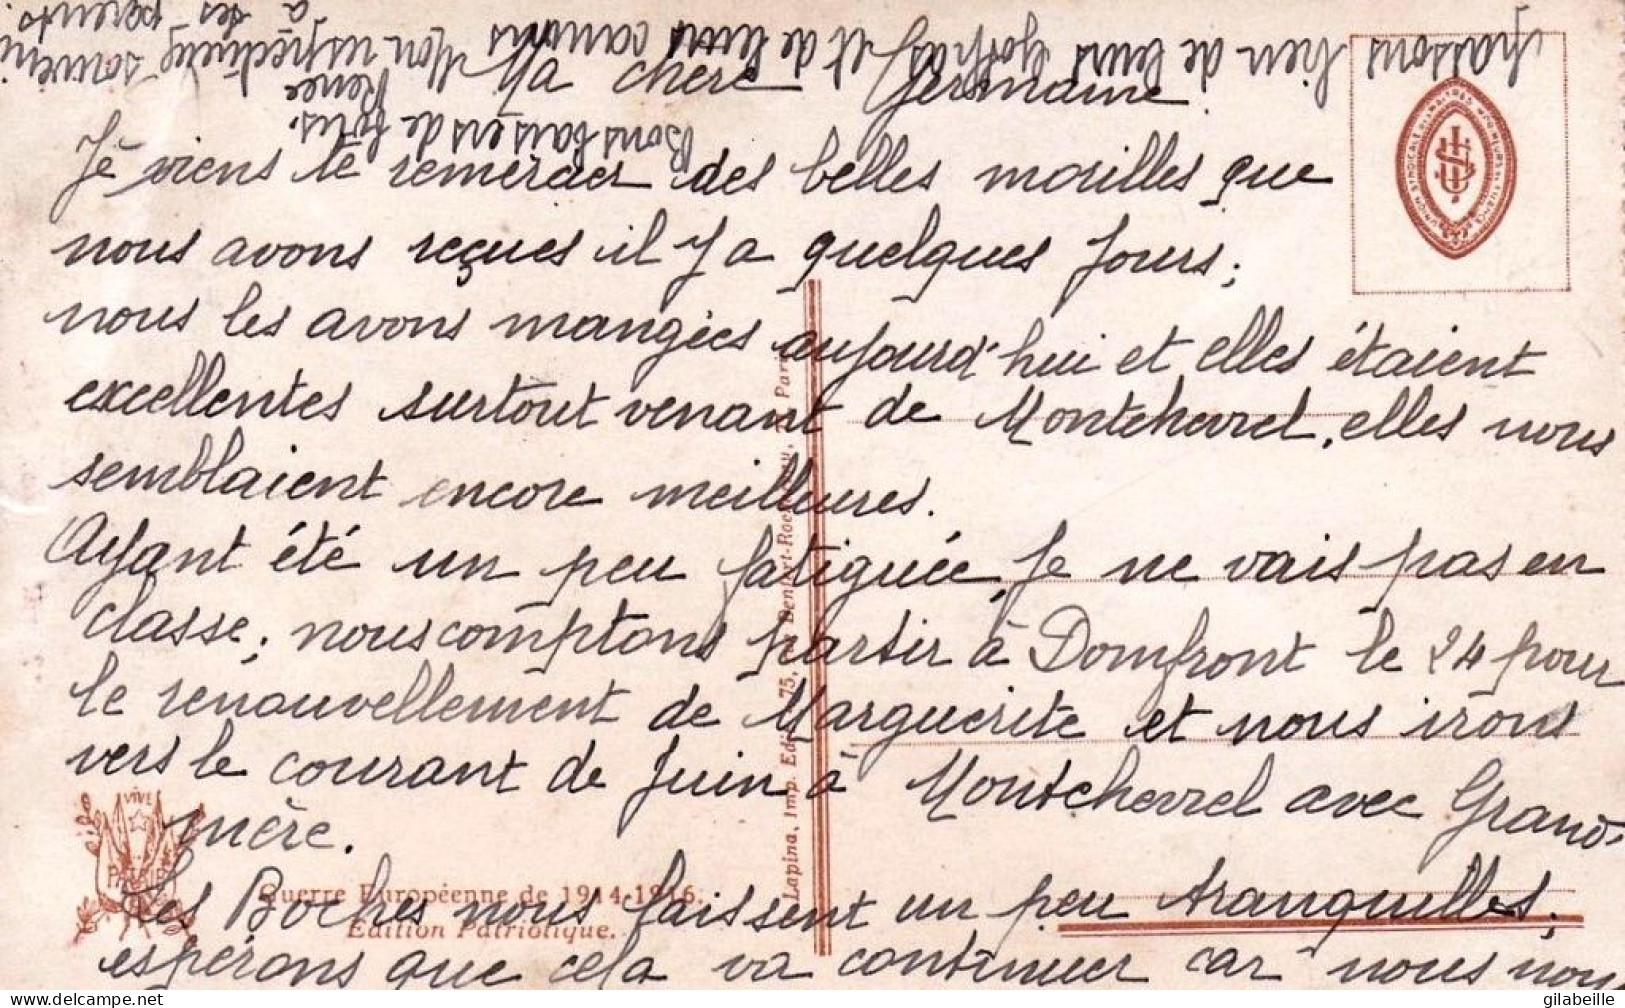 Ma chère Germaine
Je viens te remercier des belles morilles que
nous avons reçues il y a quelques jours ;
nous les avons mangées aujourd'hui et elles étaient
excellentes surtout venant de Montchevrel, elles nous
semblaient encore meilleures.
Ayant été un peu fatiguée, je ne vais pas en
classe ; nous comptons partir à Domfront le 24 pour
le renouvellement de Marguerite et nous irons
vers le courant de Juin à Montchevrel avec Grand-
mère.
Les Boches nous laissent un peu tranquilles ;
espérons que cela va continuer car nous nous
passons bien de leurs et de leurs canons Mon respectueux souvenir
à ses parents.
Bons baisers de tous.
Renée
VIVE
PATRIE
Guerre Européenne de 1914-1916.
Edition Patriotique.
Lapina, Imp. Edit. 75, Denfert-Rochereau, Paris
delcampe.net
gilabeille